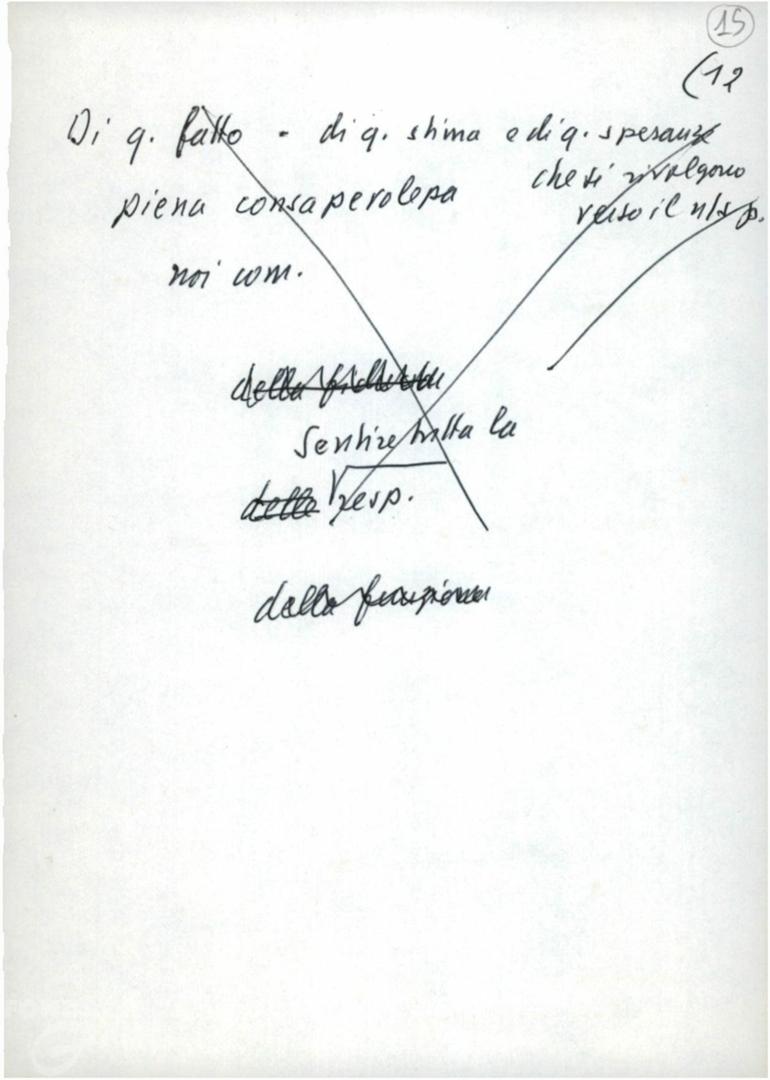 15
(12
Di q. fatto - di q. stima e di q. speranze
che si rivolgono
verso il n/s p.
piena consapevolezza
noi com.
della fiducia
Sentire tutta la
della resp.
della funzione